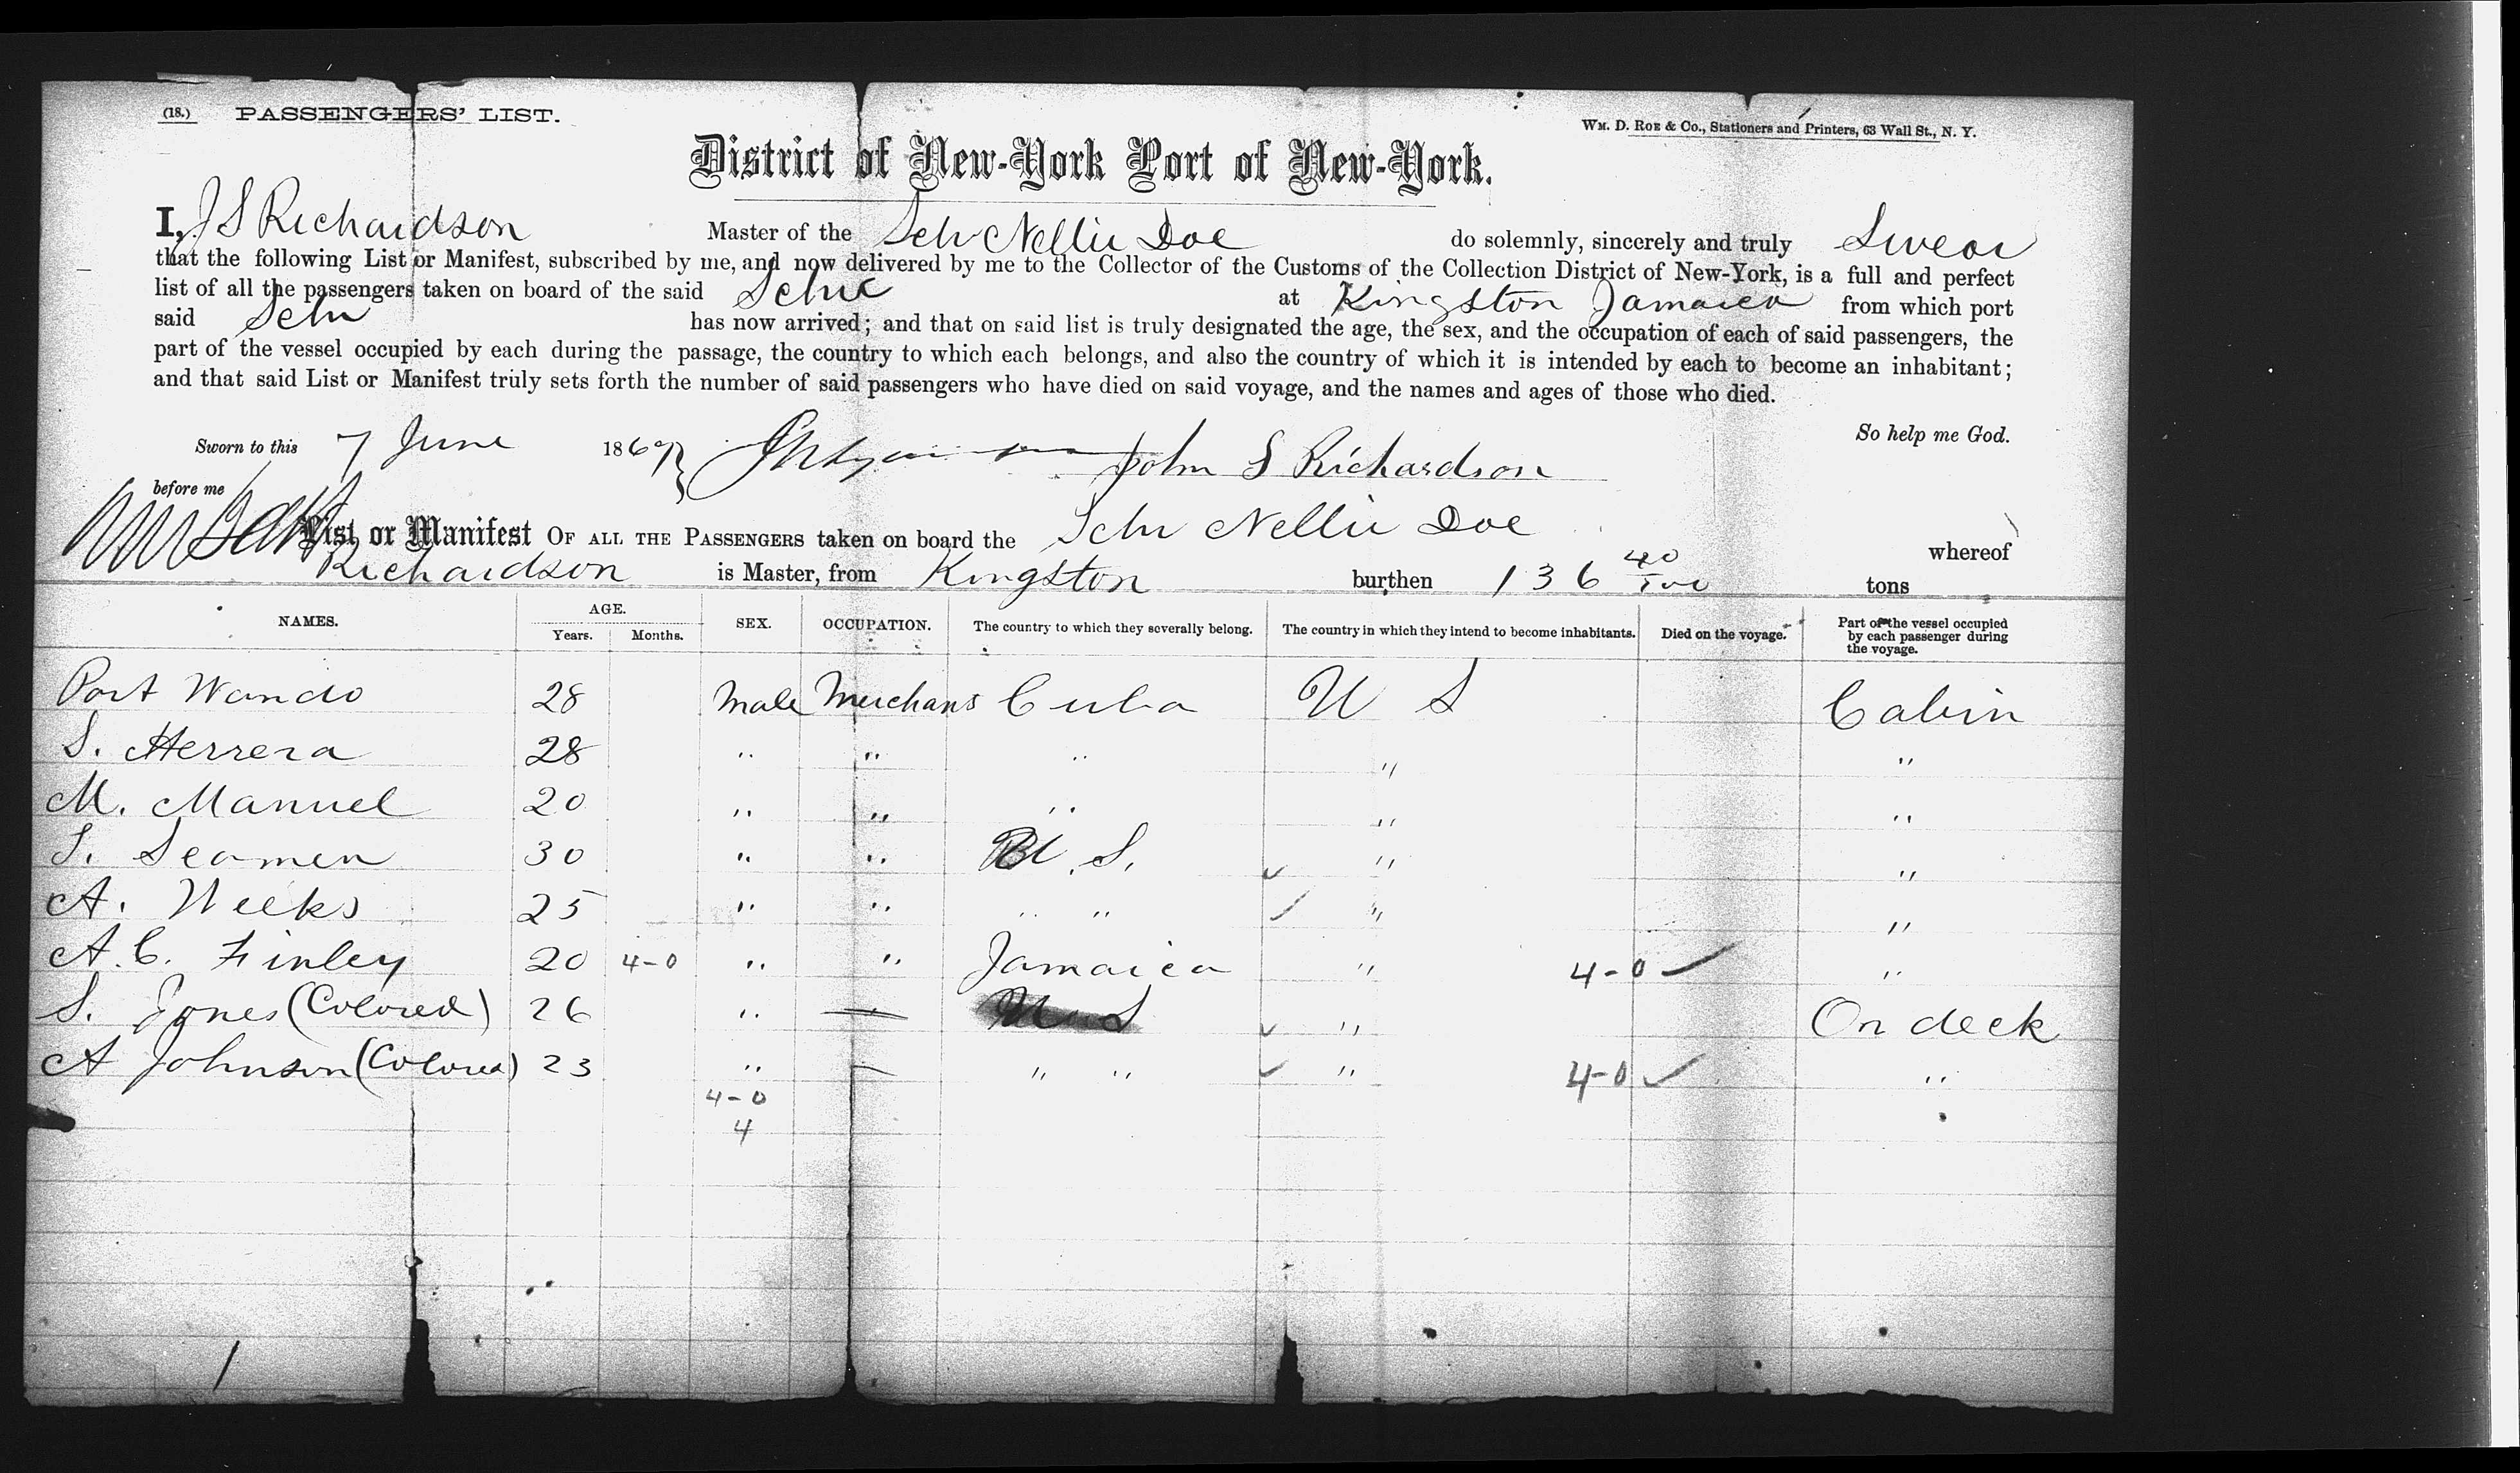 (18.) PASSENGERS' LIST.
Wm. D. Roe & Co., Stationers and Printers, 63 Wall St., N. Y.
District of New-York Port of New-York.
I, J S Richardson Master of the Schr Nellie Doe do solemnly, sincerely and truly Swear
that the following List or Manifest, subscribed by me, and now delivered by me to the Collector of the Customs of the Collection District of New-York, is a full and perfect
list of all the passengers taken on board of the said Schr at Kingston Jamaica from which port
said Schr has now arrived; and that on said list is truly designated the age, the sex, and the occupation of each of said passengers, the
part of the vessel occupied by each during the passage, the country to which each belongs, and also the country of which it is intended by each to become an inhabitant;
and that said List or Manifest truly sets forth the number of said passengers who have died on said voyage, and the names and ages of those who died.
So help me God.
Sworn to this 7 June 1869 John S Richardson
before me
List or Manifest OF ALL THE PASSENGERS taken on board the Schr Nellie Doe whereof
Richardson is Master, from Kingston burthen 136 40/100 tons
NAMES. AGE. Years. Months. SEX. OCCUPATION. The country to which they severally belong. The country in which they intend to become inhabitants. Died on the voyage. Part of the vessel occupied by each passenger during the voyage.
Port Wando 28 Male Merchans Cuba U S Cabin
S. Herrera 28 " " " " "
M. Manuel 20 " " " " "
S. Seamen 30 " " U.S. " "
A. Weeks 25 " " " " " "
A. C. Finley 20 4-0 " " Jamaica " 4-0 "
S. Jones (Colored) 26 " — U S " On deck
A Johnson (Colored) 23 " — " " " 4-0 "
4-0
4
1